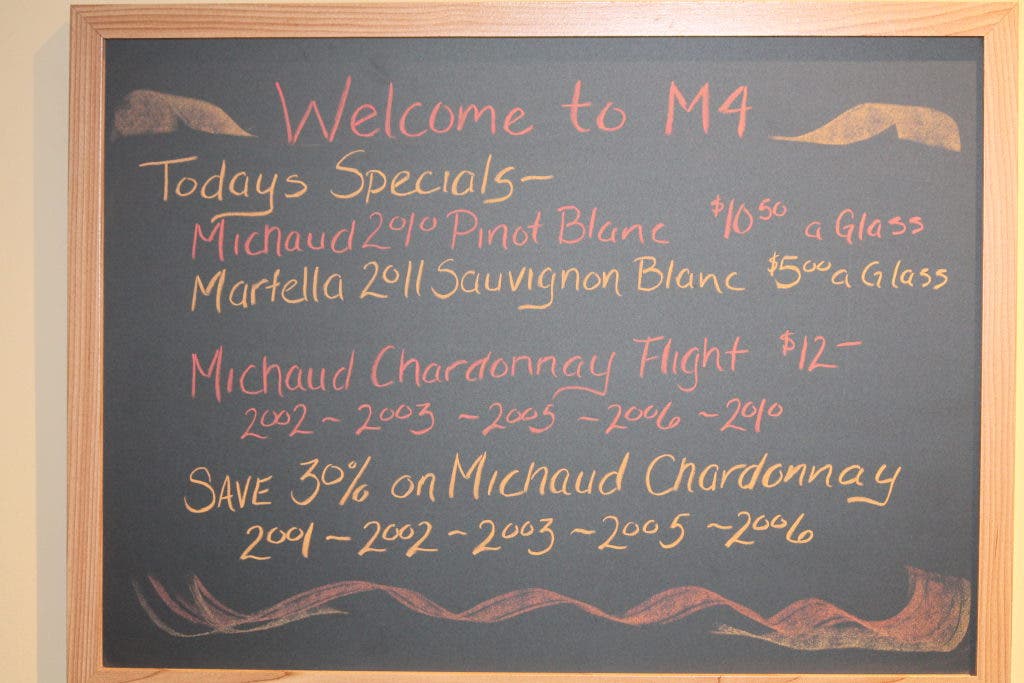 Welcome to M4
Todays Specials-
Michaud 2010 Pinot Blanc $10.50 a Glass
Martella 2011 Sauvignon Blanc $5.00 a Glass
Michaud Chardonnay Flight $12-
2002 ~ 2003 ~ 2005 ~ 2006 ~ 2010
SAVE 30% on Michaud Chardonnay
2001 ~ 2002 ~ 2003 ~ 2005 ~ 2006